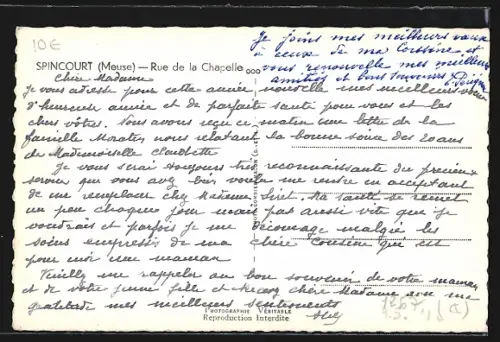 10€
Je joins mes meilleurs voeux
à ceux de ma Cousine et
vous renouvelle mes meilleures
amitiés et bons souvenirs
SPINCOURT (Meuse) — Rue de la Chapelle
Chère Madame
Je vous adresse pour cette année nouvelle mes meilleurs voeux
d'heureuse année et de parfaite santé pour vous et les
chers vôtres. Nous avons reçu ce matin une lettre de la
famille nous relatant la bonne soirée des 20 ans
de Mademoiselle Claudette
Je vous serai toujours très reconnaissante du précieux
service que vous avez bien voulu me rendre en acceptant
de me remplacer chez Madame Ma santé se remet
un peu chaque jour mais pas aussi vite que je
voudrais et parfois je me décourage malgré les
soins empressés de ma chère Cousine qui est
pour moi une maman
Veuillez me rappeler au bon souvenir de votre maman
et de votre jeune fille et chère Madame
gratitude mes meilleurs sentiments
PHOTOGRAPHIE VÉRITABLE
Reproduction Interdite